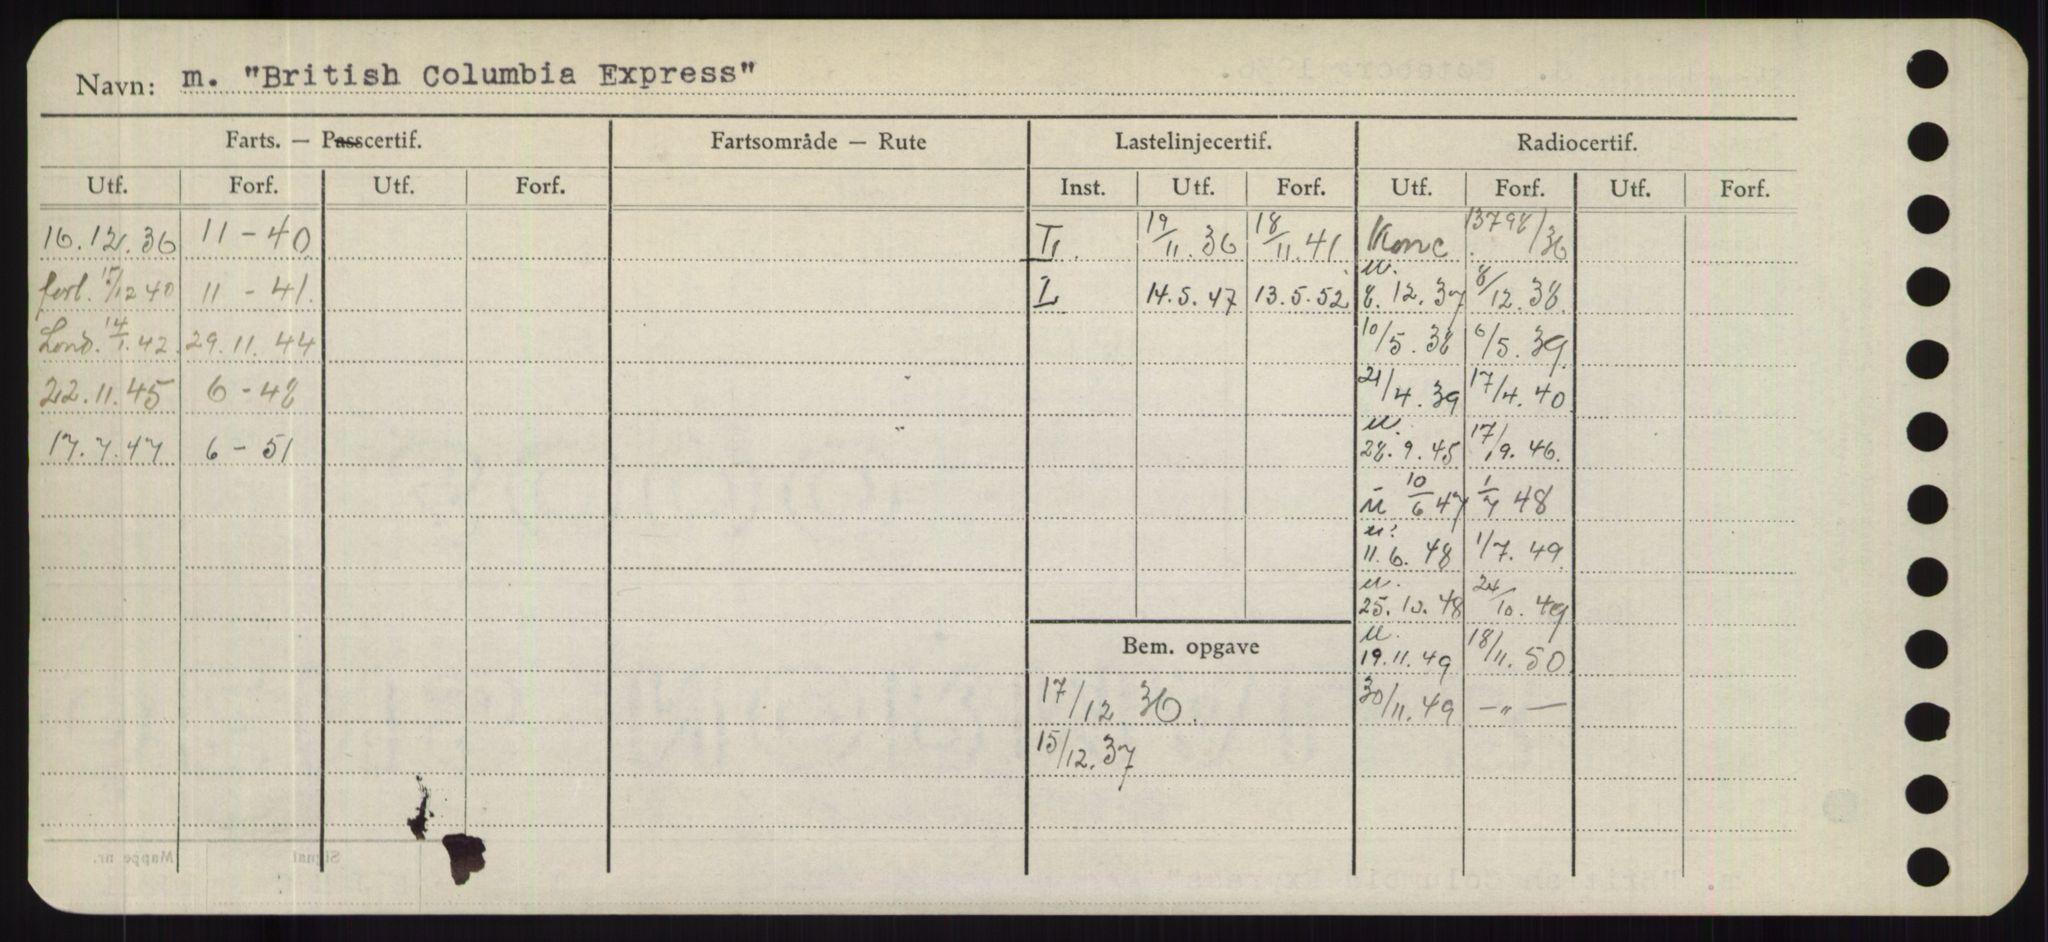 Navn: m. "British Columbia Express"
Farts. — Passcertif. Fartsområde — Rute Lastelinjecertif. Radiocertif.
Utf. Forf. Utf. Forf. Inst. Utf. Forf. Utf. Forf. Utf. Forf.
16.12.36 11 - 40 19/11.36 18/11.41 Konc 13798/36
forl. 17/12 40 11 - 41. L 14.5.47 13.5.52 u. 8.12.37 8/12.38.
Lond. 14/1.42. 29.11.44 10/5.38 6/5.39.
22.11.45 6 - 48 21/4.39 17/4.40.
17.7.47 6 - 51 u. 28.9.45 17/9.46.
u 10/6 47 1/7 48
u: 11.6.48 1/7.49.
u. 25.10.48 24/10.49
Bem. opgave u. 19.11.49 18/11.50.
17/12 36. 30/11.49 — " —
15/12.37
Mappe nr. Signal